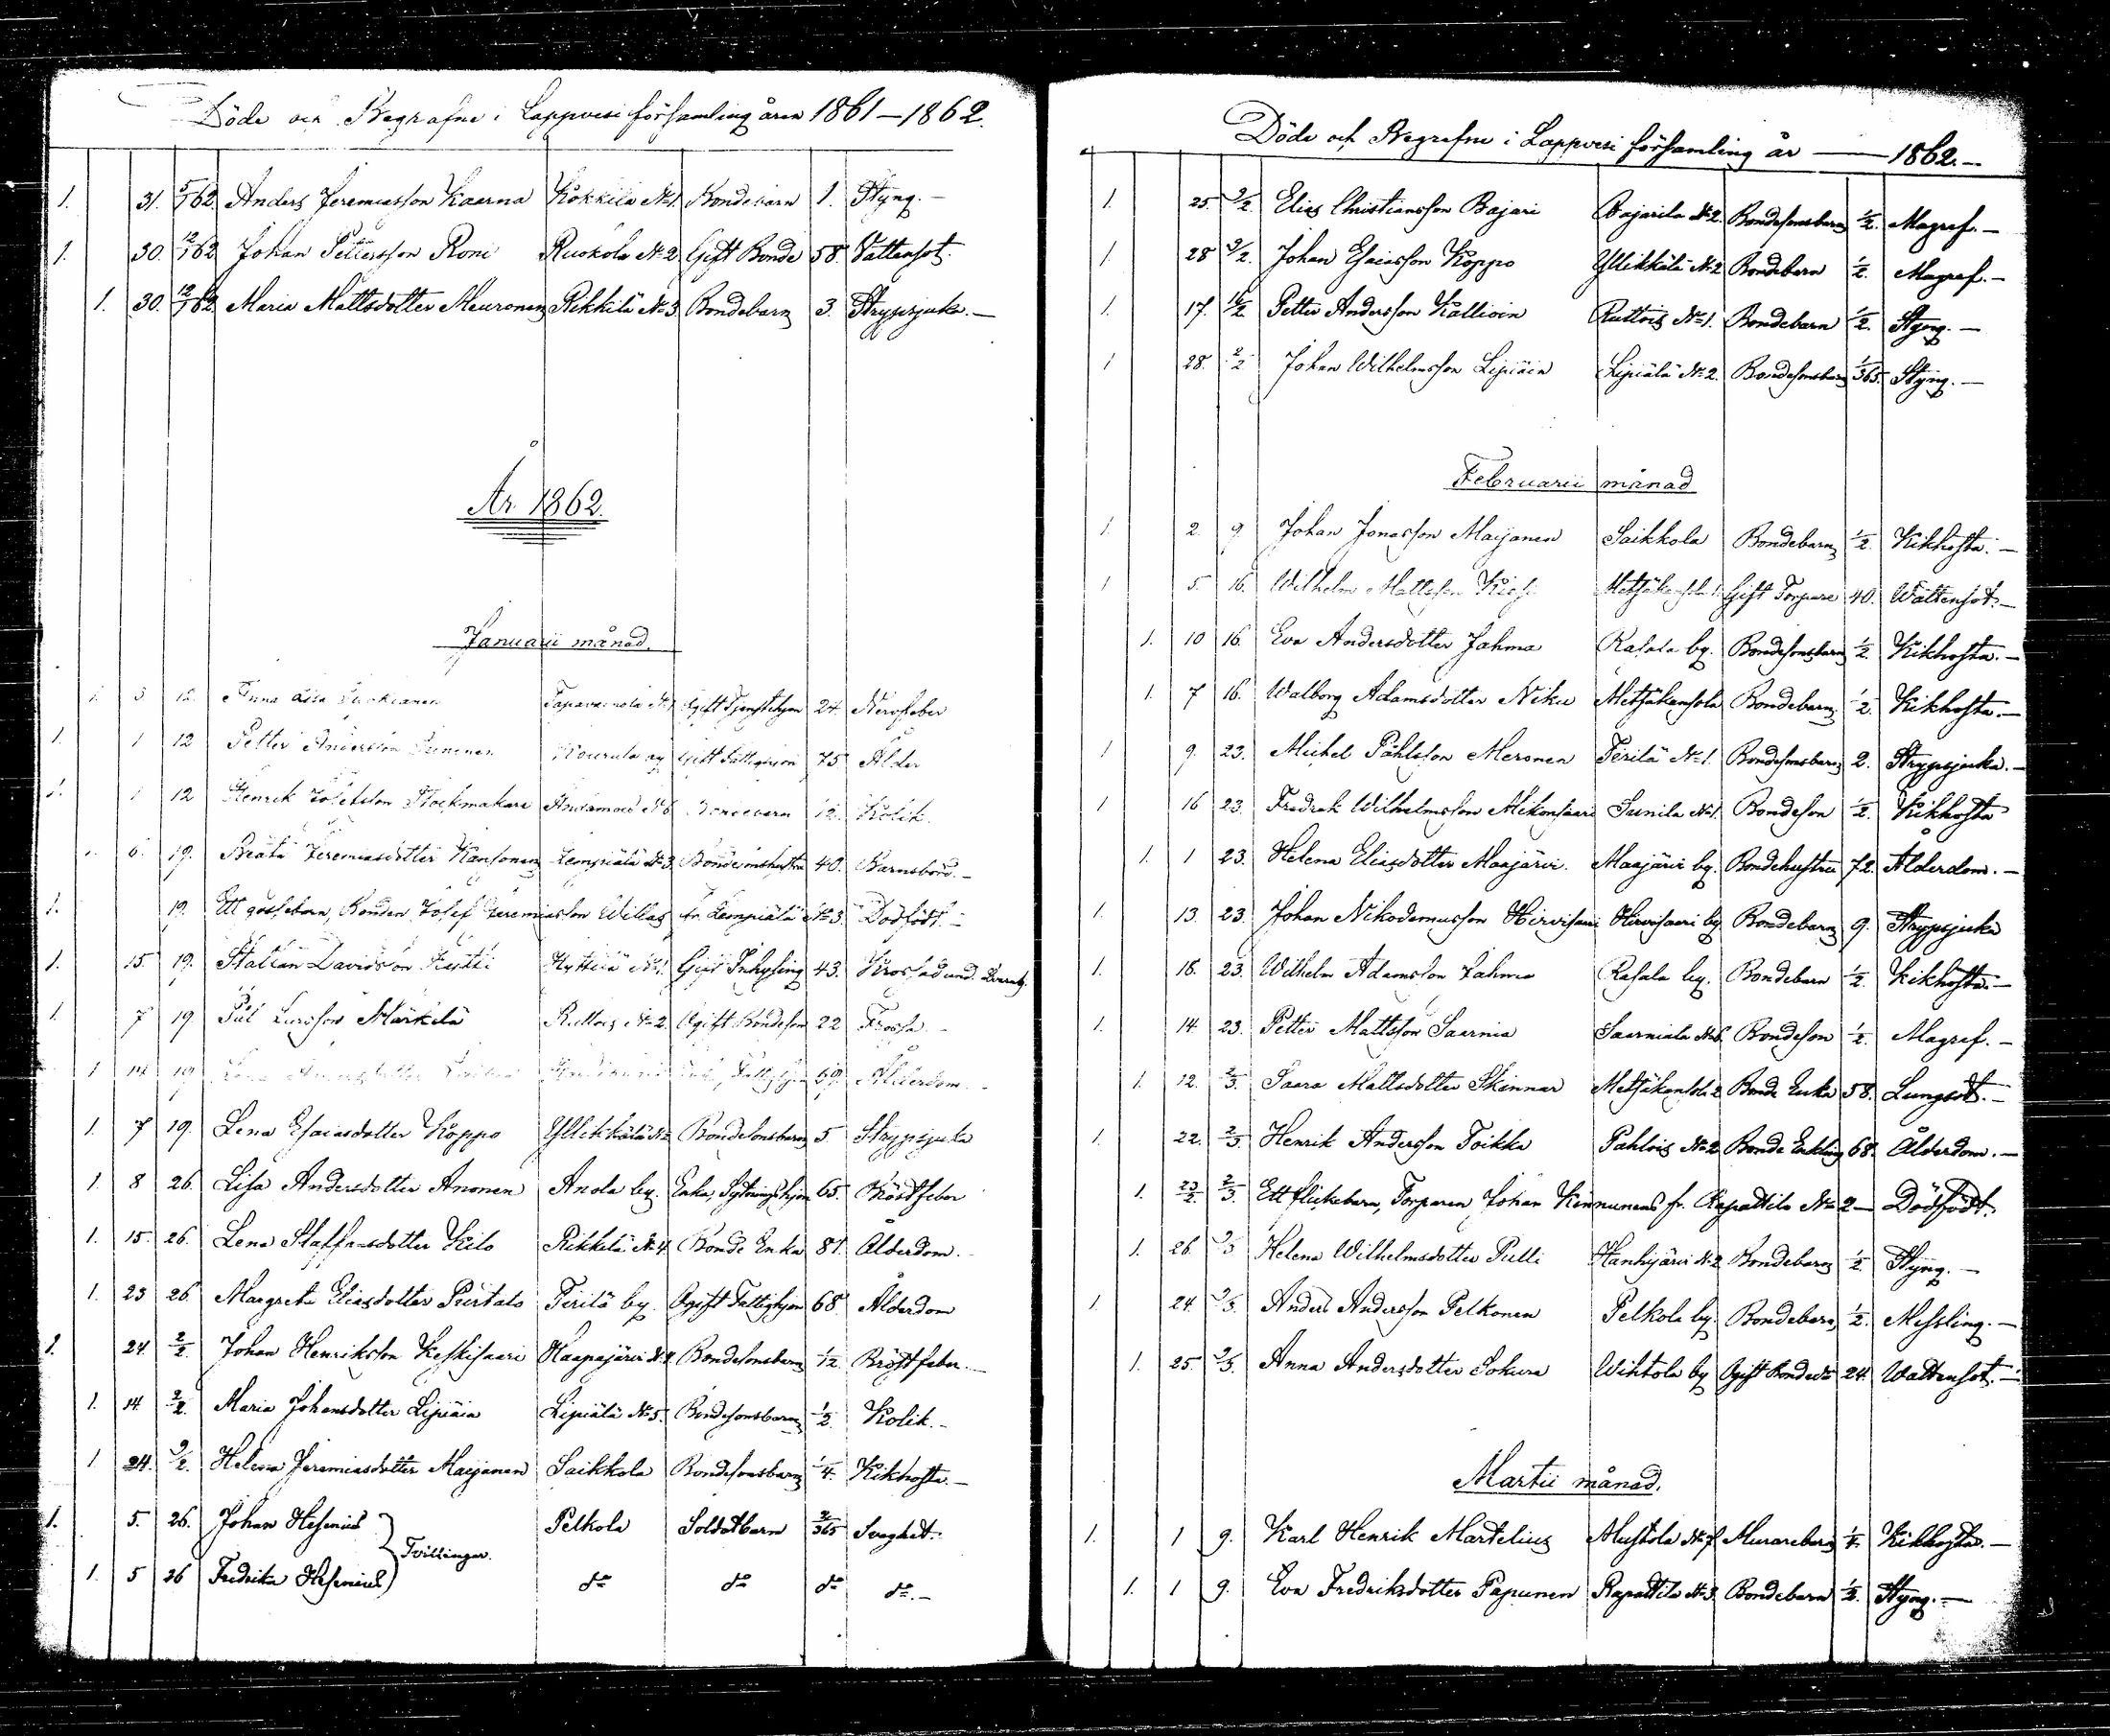 Döde och Begrafne i Lappvesi församling åren 1861–1862.
1. 31. 5/1 62. Anders Jeremiasson Kaarna Kokkila No 1. Bondebarn 1. Styng.–
1. 30. 12/1 62 Johan Pettersson Roni Ruokola No 2. Gift Bonde 58. Vattensot.
1. 30. 12/1 62. Maria Mattsdotter Meuronen Rikkilä No 3. Bondebarn 3. Strypsjuka.–
År 1862.
Januarii månad.
1. 5 12. Anna No 1 Ogift Tjenstehjon 24. Nervfeber
1. 1 12 Petter Andersson by Gift Fattighjon 75 Ålder
1. 1 12 Henrik Josefsson Stockmakare Bondebarn 12. Kolik.
1. 6. 19. Beata Jeremiasdotter Kansonen Lempiälä No 3. Bondeinhustru 40. Barnsbörd.–
1. 19. Ett gossebarn, Bonden Josef Jeremiasson Willas fr. Lempiälä No 3. Dödfödt.–
1. 15. 19. Staffan Davidsson Hyttiä No 1. Gift Inhysing 43. Krossad und.
1. 7 19. Pål Larsson Märkilä Ruttois No 2. Ogift Bondeson 22 Frossa.–
1 14 19 Lena 69. Ålderdom.–
1. 7 19. Lena Esaiasdotter Koppo Yllikkälä No 2 Bondesonsbarn 5. Strypsjuka
1. 8 26. Lisa Andersdotter Anonen Anola by. Enka, Sytningshjon 65. Röstfeber
1. 15. 26. Lena Staffansdotter Kilo Rikkilä No 4. Bonde Enka 81. Ålderdom.
1. 23 26. Margreta Eliasdotter Purtato Tirilä by. Ogift Fattighjon 68. Ålderdom
1. 24. 2/2. Johan Henriksson Keskisaari Haapajärvi No 4. Bondesonsbarn 1/12. Bröstfeber.–
1. 14. 2/2. Maria Johansdotter Lipiäin Lipiälä No 5. Bondesonsbarn 1/2. Kolik.–
1 24. 9/2. Helena Jeremiasdotter Maijanen Saikkola Bondesonsbarn 1/4. Kikhosta.–
1. 5. 26. Johan Hesenius Pelkola Soldatbarn 2/365 Svaghet.
Tvillingar.
1. 5 26 Fredrika Hesenius do do do do.–
Döde och Begrafne i Lappvesi församling år — 1862.–
1. 25. 9/2. Elias Christiansson Bajari Bajarila No 2. Bondesonsbarn 1/2. Magref.–
1. 28 9/2. Johan Esaiasson Koppo Yllikkälä No 2 Bondebarn 1/2. Magref.–
1. 17. 16/2. Petter Andersson Kallioin Ruttois No 1. Bondebarn 1/2. Styng.–
1 28. 2/2 Johan Wilhelmsson Lipiäin Lipiälä No 2. Bondesonsbarn 1/365. Styng.–
Februarii månad
1. 2. 9. Johan Jonasson Maijanen Saikkola Bondebarn 1/2. Kikhosta.–
1 5. 16. Wilhelm Mattsson Metsäkansola Gift Torpare 40. Wattensot.–
1. 10 16. Eva Andersdotter Jahma Rasala by. Bondesonsbarn 1/2. Kikhosta.–
1. 7 16. Walborg Adamsdotter Niku Metsäkansola Bondebarn 1/2. Kikhosta.–
1 9. 23. Michel Påhlsson Meronen Tirilä No 1. Bondesonsbarn 2. Strypsjuka.–
1 16 23. Fredrik Wilhelmsson Mikonsaari Sunila No 1. Bondeson 1/2. Kikhosta
1. 1 23. Helena Eliasdotter Maajärvi. Maajärvi by. Bondehustru 72. Ålderdom.–
1. 13. 23. Johan Nikodemusson Hirvisaari Hirvisaari by. Bondebarn 9. Strypsjuka
1. 18. 23. Wilhelm Adamsson Jahma Rasala by. Bondebarn 1/2. Kikhosta.–
1. 14. 23. Petter Mattsson Saarnia Saarniala No 6. Bondeson 1/2. Magref.–
1. 12. 2/3. Saara Mattsdotter Skinnar Metsäkansola 2 Bonde Enka 58. Lungsot.–
1. 22. 2/3. Henrik Andersson Toikka Pahlois No 2 Bonde Enkling 68. Ålderdom.–
1. 23/2. 2/3. Ett flickebarn, Torparen Johan Kinnunens fr. Rapattila No 2 – Dödfödt.
1. 26. 9/3 Helena Wilhelmsdotter Pulli Hanhijärvi No 2 Bondebarn 1/2. Styng.–
1. 24. 9/3. Anders Andersson Pelkonen Pelkola by. Bondebarn 1/2. Messling.–
1. 25. 9/3. Anna Andersdotter Sokura Wihtola by Ogift Bonded:r 24. Wattensot.–
Martii månad.
1. 1 9. Karl Henrik Martelius Mustola No 7 Murarebarn 1/4. Kikhosta.–
1. 1 9. Eva Fredriksdotter Papunen Rapattila No 3. Bondebarn 1/2. Styng.–